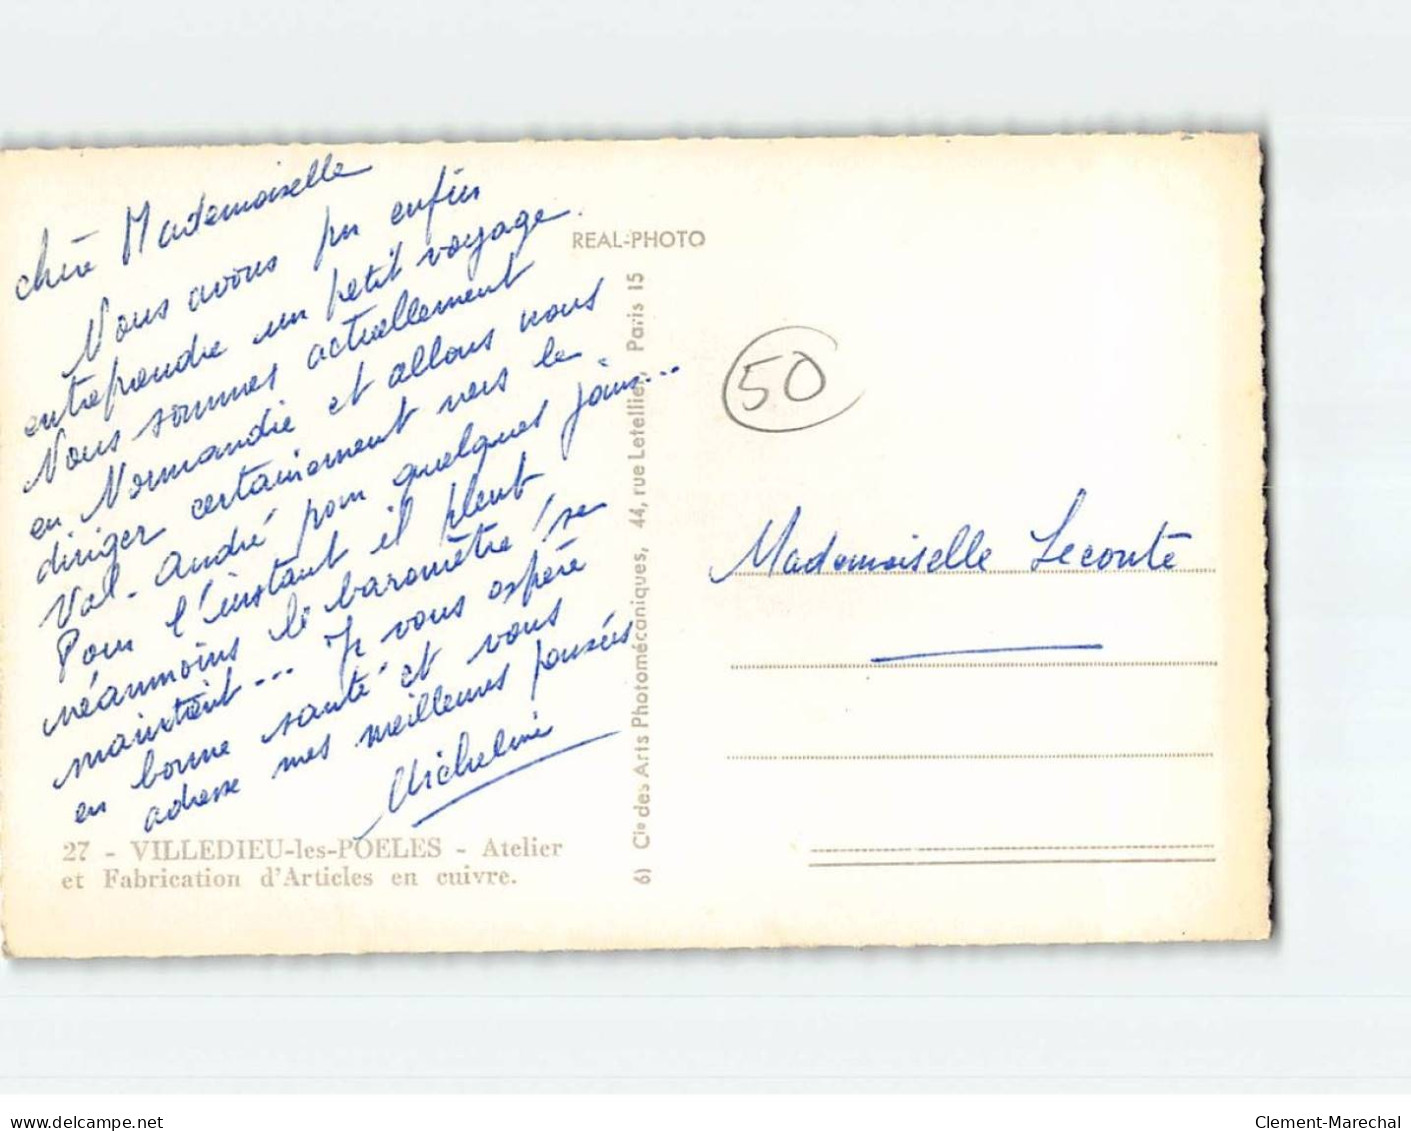 chère Mademoiselle
Nous avons pu enfin
entreprendre un petit voyage.
Nous sommes actuellement
en Normandie et allons nous
diriger certainement vers le
Val-André pour quelques jours...
Pour l'instant il pleut
néanmoins le baromètre se
maintient... Je vous espère
en bonne santé et vous
adresse mes meilleures pensées
Micheline
27 - VILLEDIEU-les-POELES - Atelier
et Fabrication d'Articles en cuivre.
REAL-PHOTO
6) Cie des Arts Photomécaniques, 44, rue Letellier, Paris 15
50
Mademoiselle Leconte
www.delcampe.net
Clement-Marechal